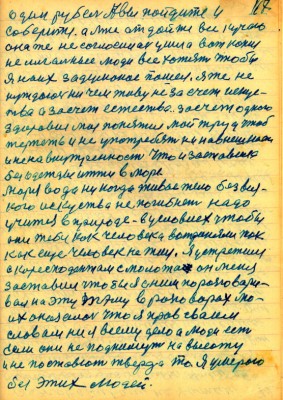 один рубел А вы пойдите и 67
соберите. а мне отдайте все кучею
она же не согласилася ушла вот какие
не нормальные люди все хотят чтобы
я на них задуманое пошел. я же не
нуждаюсь ни чем живу не за счет искус-
ства а за счет естества. за счет одного
здоровия мое понятие мой труд чтоб
терпеть и не употреблять ни на внешность
и не на внутренность что и заставляет
без одежди итти в море
моря вода ни когда живое тело без вся-
кого искуства не погибнет надо
учится в природе в условиях чтобы
они тебя как человека
как еще человек не жил. Я устретился
с кореспондентам с молота он меня
заставил чтобы я с ним поразговари-
вал на эту в разговорах мо-
их оказалось что я прав своим
словам ни я всему дело а люди есть
если они не поднимут на высоту
и не поставют тверда то я умераю
без этих людей.